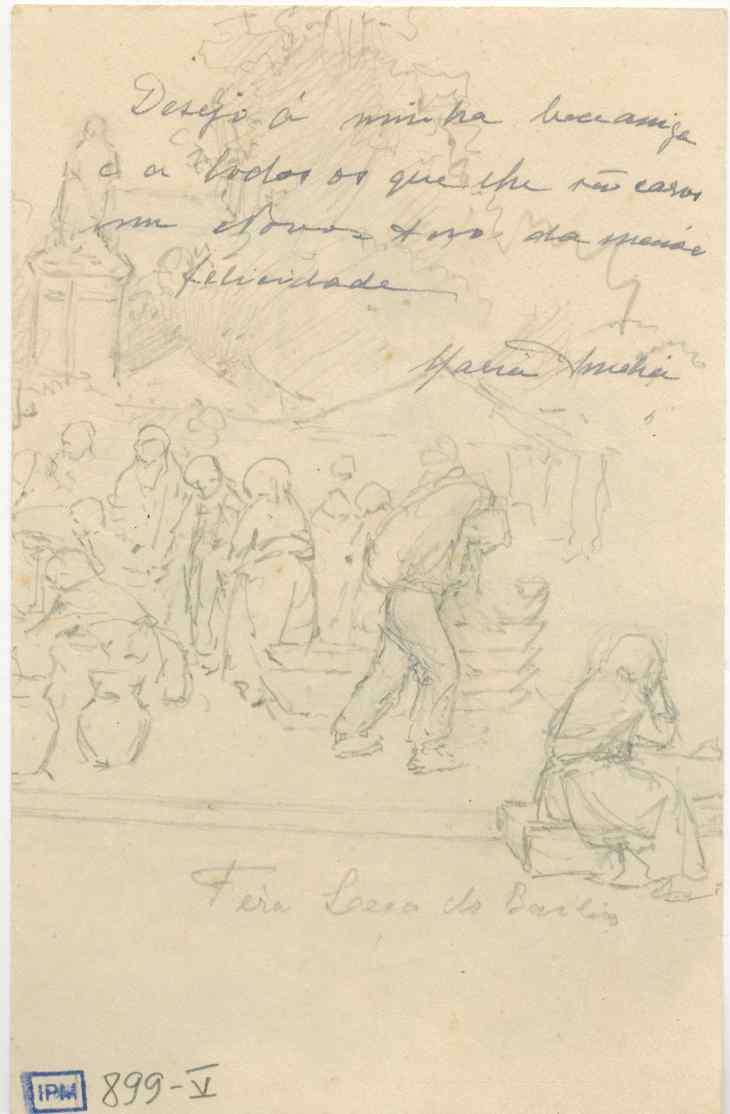 Desejo á minha boa amiga
e a todos os que lhe são caros
um Novo-Ano da maior
felicidade
Maria Amelia
Feira Leça do Bailio
IPM 899-V